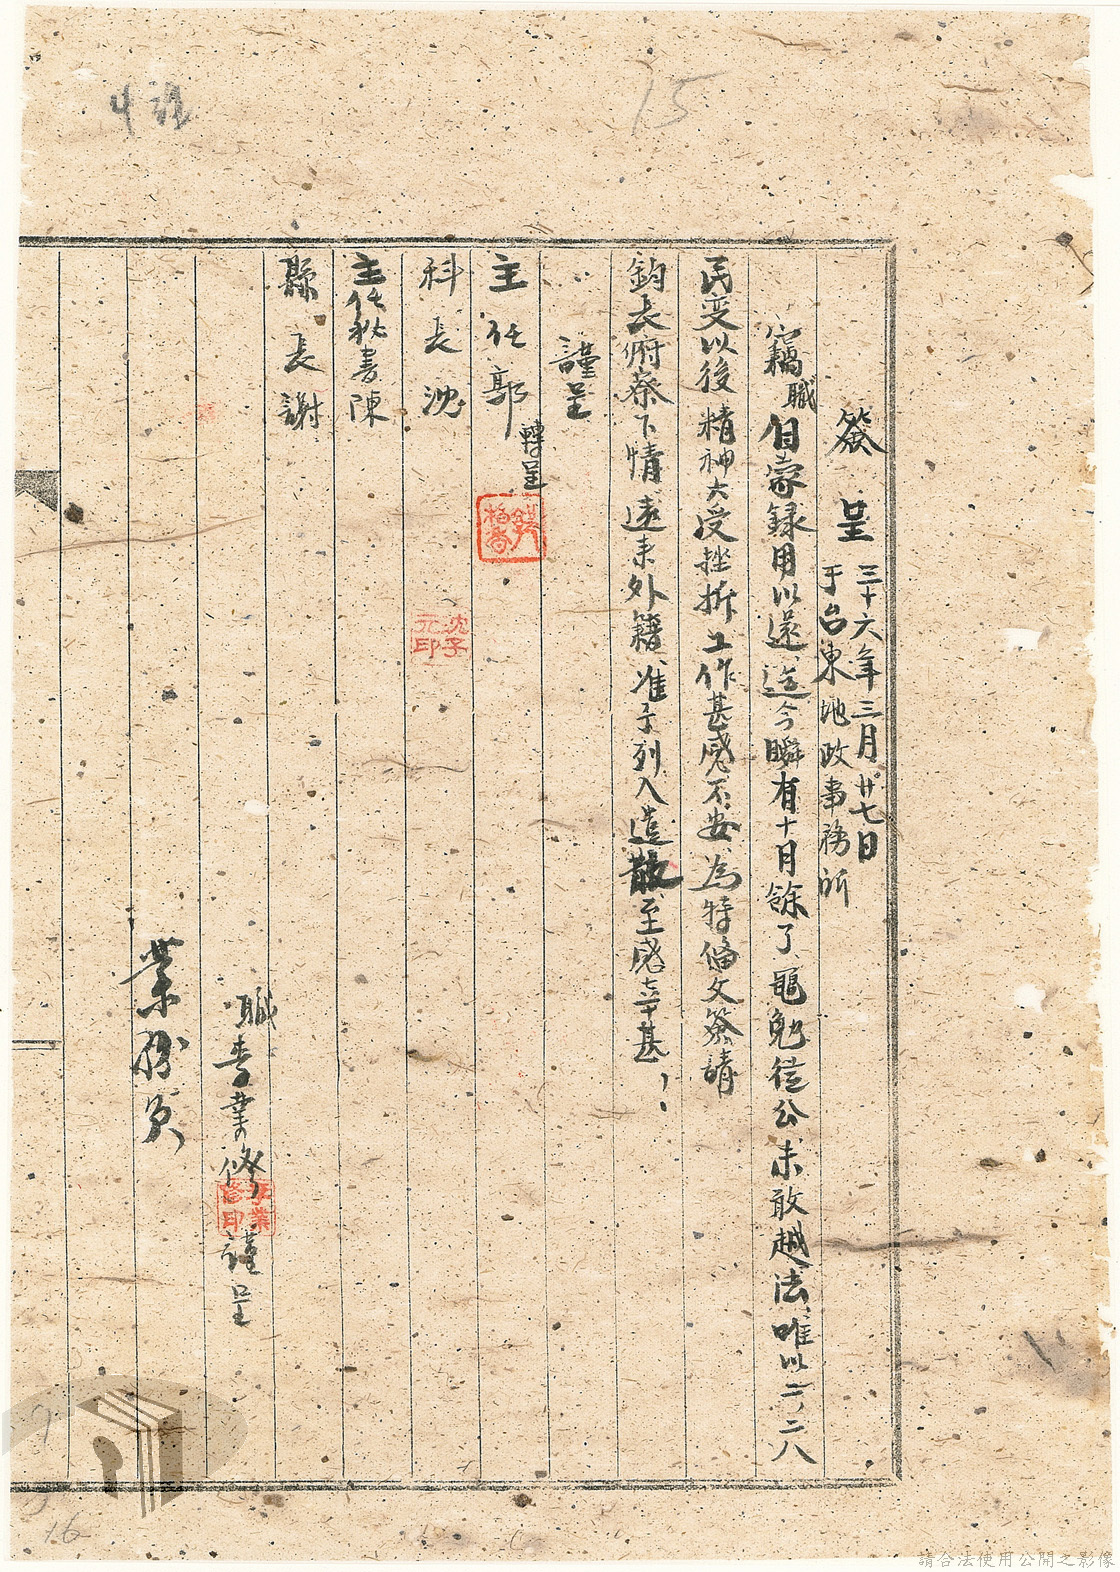 15
簽呈 三十六年三月廿七日
于台東地政事務所
竊職自蒙錄用以還迄今瞬有十月餘了黽勉從公未敢越法唯以二,二八
民变以後精神大受挫折工作甚感不安為特俻文簽請
鈞長俯察下情遠來外籍准予列入遣散至感幸甚!
謹呈
主任郭 轉呈
科長沈
沈子元印
主任秘書陳
縣長謝
職李業修謹呈
李業修印
業務員
16
請合法使用公開之影像